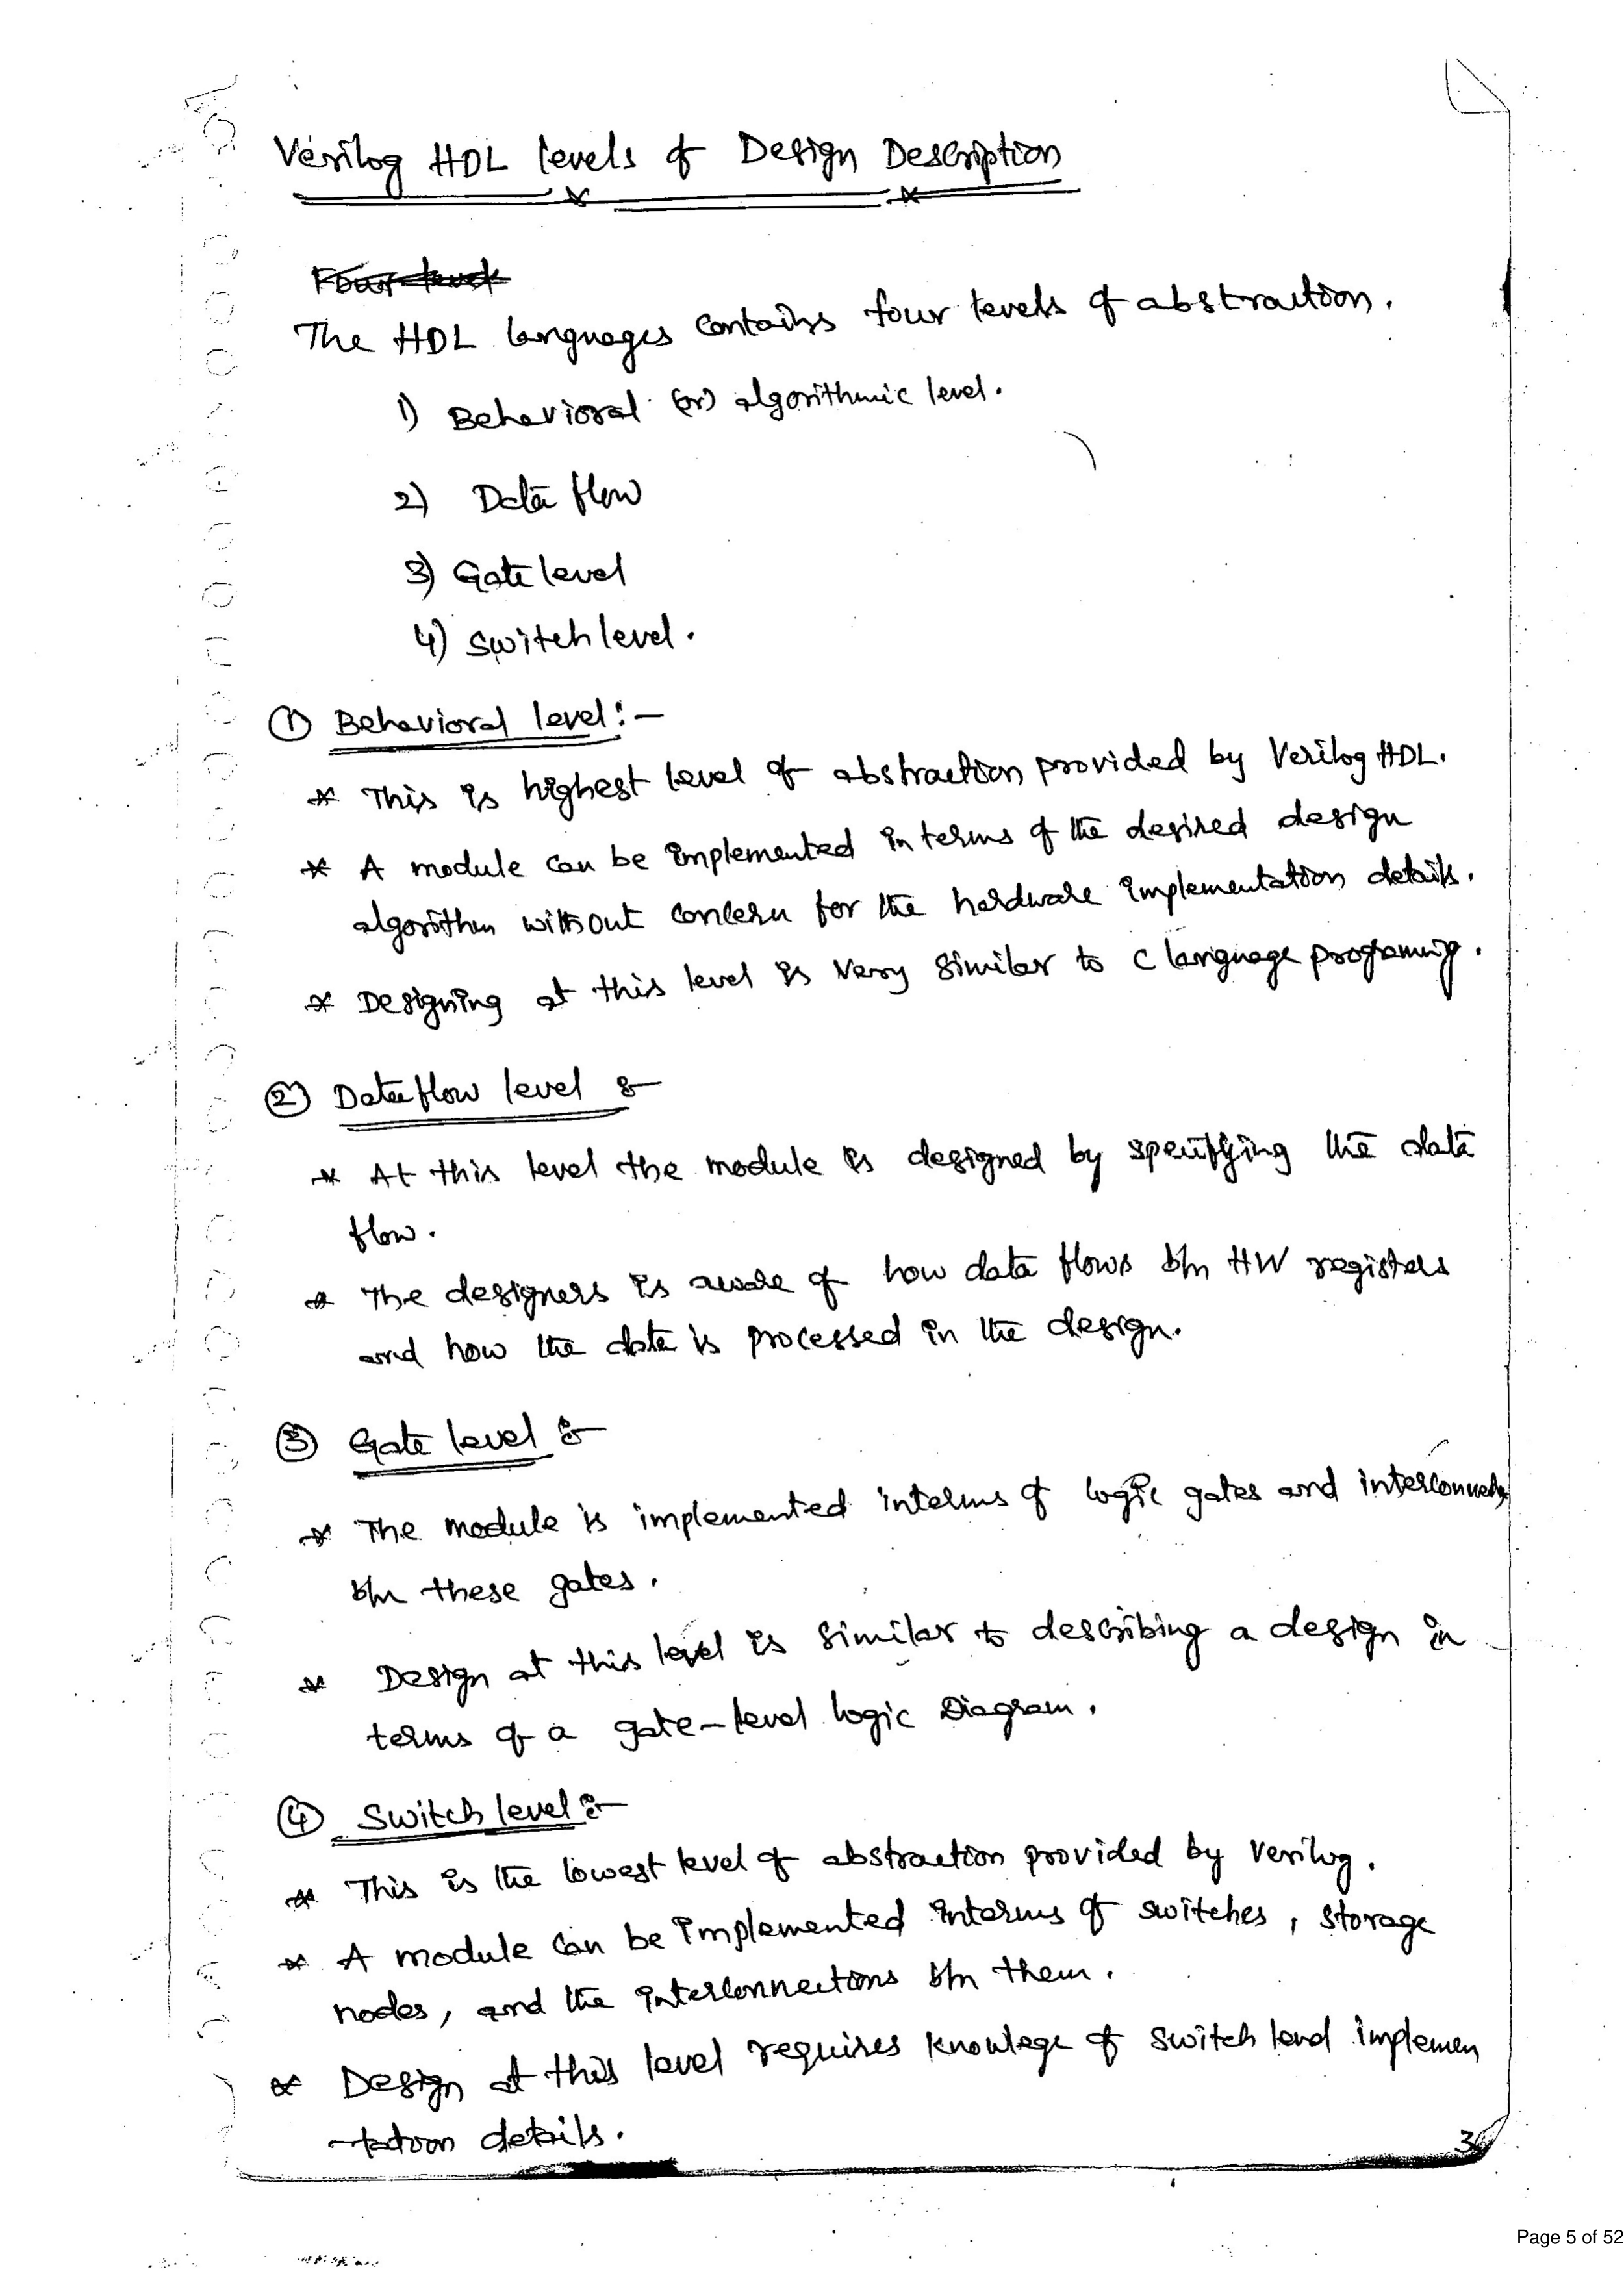 Verilog HDL levels of Design Description
Four level
The HDL languages contains four levels of abstraction.
1) Behavioral (or) algorithmic level.
2) Data flow
3) Gate level
4) Switch level.
① Behavioral level:-
* This is highest level of abstraction provided by Verilog HDL.
* A module can be implemented in terms of the desired design
algorithm without concern for the hardware implementation details.
* Designing at this level is very similar to C language programing.
② Dataflow level :-
* At this level the module is designed by specifying the data
flow.
* The designers is aware of how data flows b/n HW registers
and how the data is processed in the design.
③ Gate level :-
* The module is implemented interms of logic gates and interconnects
b/n these gates.
* Design at this level is similar to describing a design in
terms of a gate-level logic Diagram.
④ Switch level :-
* This is the lowest level of abstraction provided by Verilog.
* A module can be implemented interms of switches, storage
nodes, and the interconnections b/n them.
* Design at this level requires knowlege of switch level implemen
-tation details.
3
Page 5 of 52